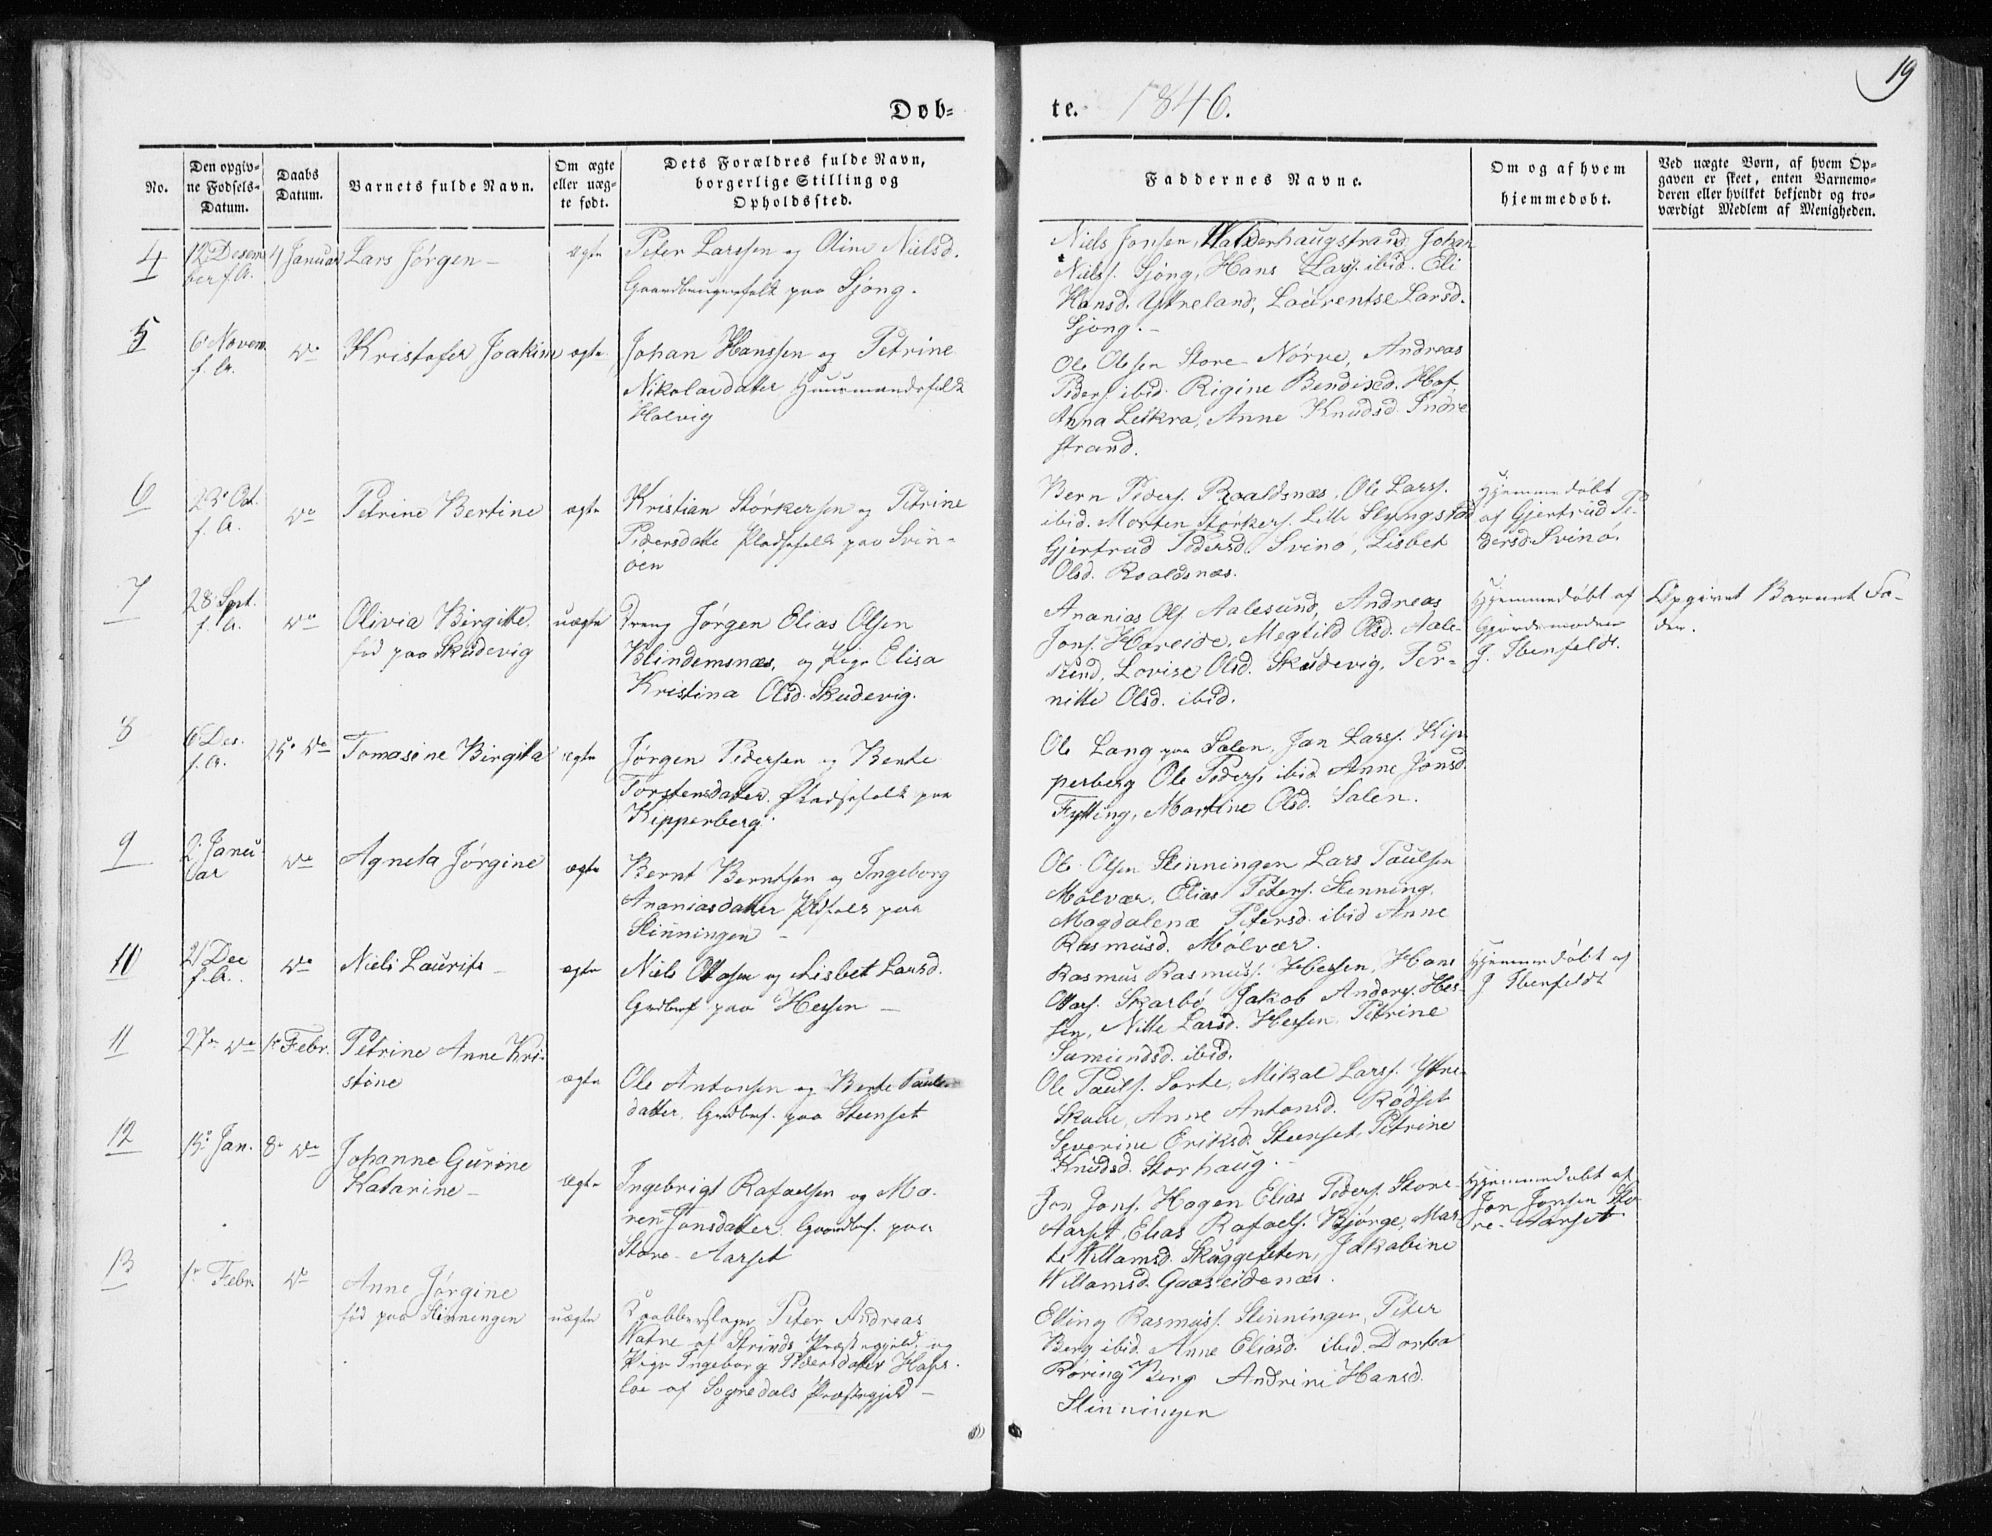 19
Døb-
te. 1846.
No.
Den opgiv-
ne Fødsels-
Datum.
Daabs
Datum.
Barnets fulde Navn.
Om ægte
eller uæg-
te født.
Dets Forældres fulde Navn,
borgerlige Stilling og
Opholdssted.
Faddernes Navne.
Om og af hvem
hjemmedøbt.
Ved uægte Børn, af hvem Op-
gaven er skeet, enten Barnemo-
deren eller hvilket bekjendt og tro-
værdigt Medlem af Menigheden.
4
12 Desem
ber f. A.
4 Januar
Lars Jørgen
ægte
Peter Larssen og Oline Nielsd.
Gaardbrugerfolk paa Sjong.
Niels Jonsen, Valderhaugstrand, Johan
Niels. Sjong, Hans Lars. ibid. Eli
Hansd. Ytreland, Laurentse Larsd.
Sjong.
5
6 Novem
f. A.
do
Kristofer Joakim
ægte
Johan Hanssen og Petrine
Nikolaidatter Huusmandsfolk
Holvig
Ole Olsen Store-Nørve, Andreas
Peders. ibid. Rigine Bendixd. Hof,
Anna Leikra, Anne Knudsd. Indre
strand.
6
23 Oct.
f. A.
do
Petrine Bertine
ægte
Kristian Størkersen og Petrine
Pedersdatte Pladsefolk paa Svin-
øen
Bern Peders. Roaldsnæs, Ole Lars.
ibid. Morten Størkers. Lille Slyngstad
Gjertrud Pedersd. Svinø, Lisbet
Olsd. Roaldsnæs.
Hjemmedøbt
af Gjertrud Pe-
dersd. Svinø.
7
28 Sept.
f. A.
do
Olivia Birgitte,
fød paa Skudevig
uægte
Dreng Jørgen Elias Olsen
Blindemsnæs, og Pige Elisa
Kristina Olsd. Skudevig.
Ananias Ols. Aalesund, Andreas
Jons. Hareide, Megtild Olsd. Aale-
sund, Lovise Olsd. Skudevig, Per-
nille Olsd. ibid.
Hjemmedøbt af
Gjordemoder
J. Ibenfeldt.
Opgivet Barnets Fa-
der.
8
6 Des.
f. A.
25 do
Tomasine Birgitta
ægte
Jørgen Pedersen og Bente
Torstensdatter. Pladsefolk paa
Kipperberg.
Ole Lang paa Salen, Jan Lars. Kip-
perberg Ole Peders. ibid Anne Jonsd.
Fylling, Martine Olsd. Salen.
9
2 Janu-
ar
do
Agneta Jørgine
ægte
Bernt Berntsen og Ingeborg
Ananiasdatter Pldsfolk paa
Slinningen
Ole Olsen Slinningen Lars Paulsen
Molvær, Elias Peters. Slenning,
Magdalena Petersd. ibid Anne
Rasmusd. Molvær.
10
21 Dec
f. A.
do
Niels Laurits
ægte
Niels Ottosen og Lisbet Larsd.
Grdbrf paa Hessen
Rasmus Rasmus. Hessen, Hans
Ottos. Skarbø Jakob Anders. Hes-
sen, Nille Larsd. Hessen, Petrine
Samiendsd. ibid.
Hjemmedøbt af
J Ibenfeldt
11
27 do
1 Febr.
Petrine Anne Kri-
stine
ægte
Ole Antonsen og Berte Pauls-
datter. Grdbrf. paa Steenset
Ole Pauls. Sorte, Mikal Lars. Ytre-
Skole, Anne Antonsd. Rødset
Severine Eriksd. Steenset, Petrine
Knudsd. Storhaug.
12
13 Jan.
8 do
Johanne Gurine
Katarine
ægte
Ingebrigt Rafaelsen og Ma-
ren Jonsdatter. Gaardbrf. paa
Store-Aarset
Jon Jons. Hagen Elias Peders. Store-
Aarset, Elias Rafaels. Bjørge, Mar-
te Willamsd. Skuggeften, Jakobine
Willamsd. Gaaseidenæs.
Hjemmedøbt af
Jon Jonsen Sto-
re-Aarset
13
1 Febr.
do
Anne Jørgine
fød paa Slinningen
uægte
Kaabberslager Peter Andreas
Watne af Strinds Præstegjeld, og
Pige Ingeborg Pedersdatter Haps-
løe af Sognedals Præstegjeld
Elling Rasmus. Slinningen, Peter
Berg ibid. Anne Eliasd. ibid. Dorta
Røring Berg Andrine Hansd.
Slinningen